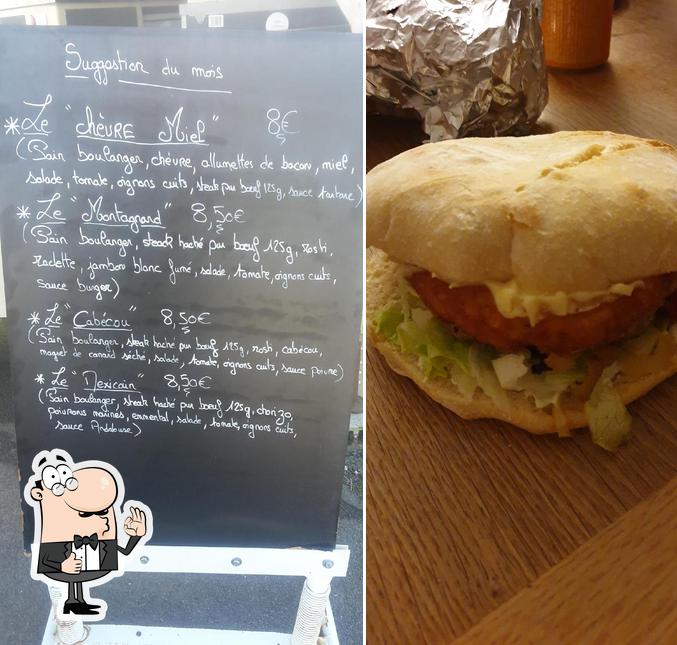 Suggestion du mois
* Le "chèvre Miel" 8€
(Pain boulanger, chèvre, allumettes de bacon, miel,
salade, tomate, oignons cuits, steak pur bœuf 125g, sauce tartare)
* Le "Montagnard" 8,50€
(Pain boulanger, steak haché pur bœuf 125g, rosti,
raclette, jambon blanc fumé, salade, tomate, oignons cuits,
sauce burger)
* Le "Cabécou" 8,50€
(Pain boulanger, steak haché pur bœuf 125g, rosti, cabécou,
magret de canard séché, salade, tomate, oignons cuits, sauce poivre)
* Le "Mexicain" 8,50€
(Pain boulanger, steak haché pur bœuf 125g, chorizo,
poivrons marinés, emmental, salade, tomate, oignons cuits,
sauce Andalouse)